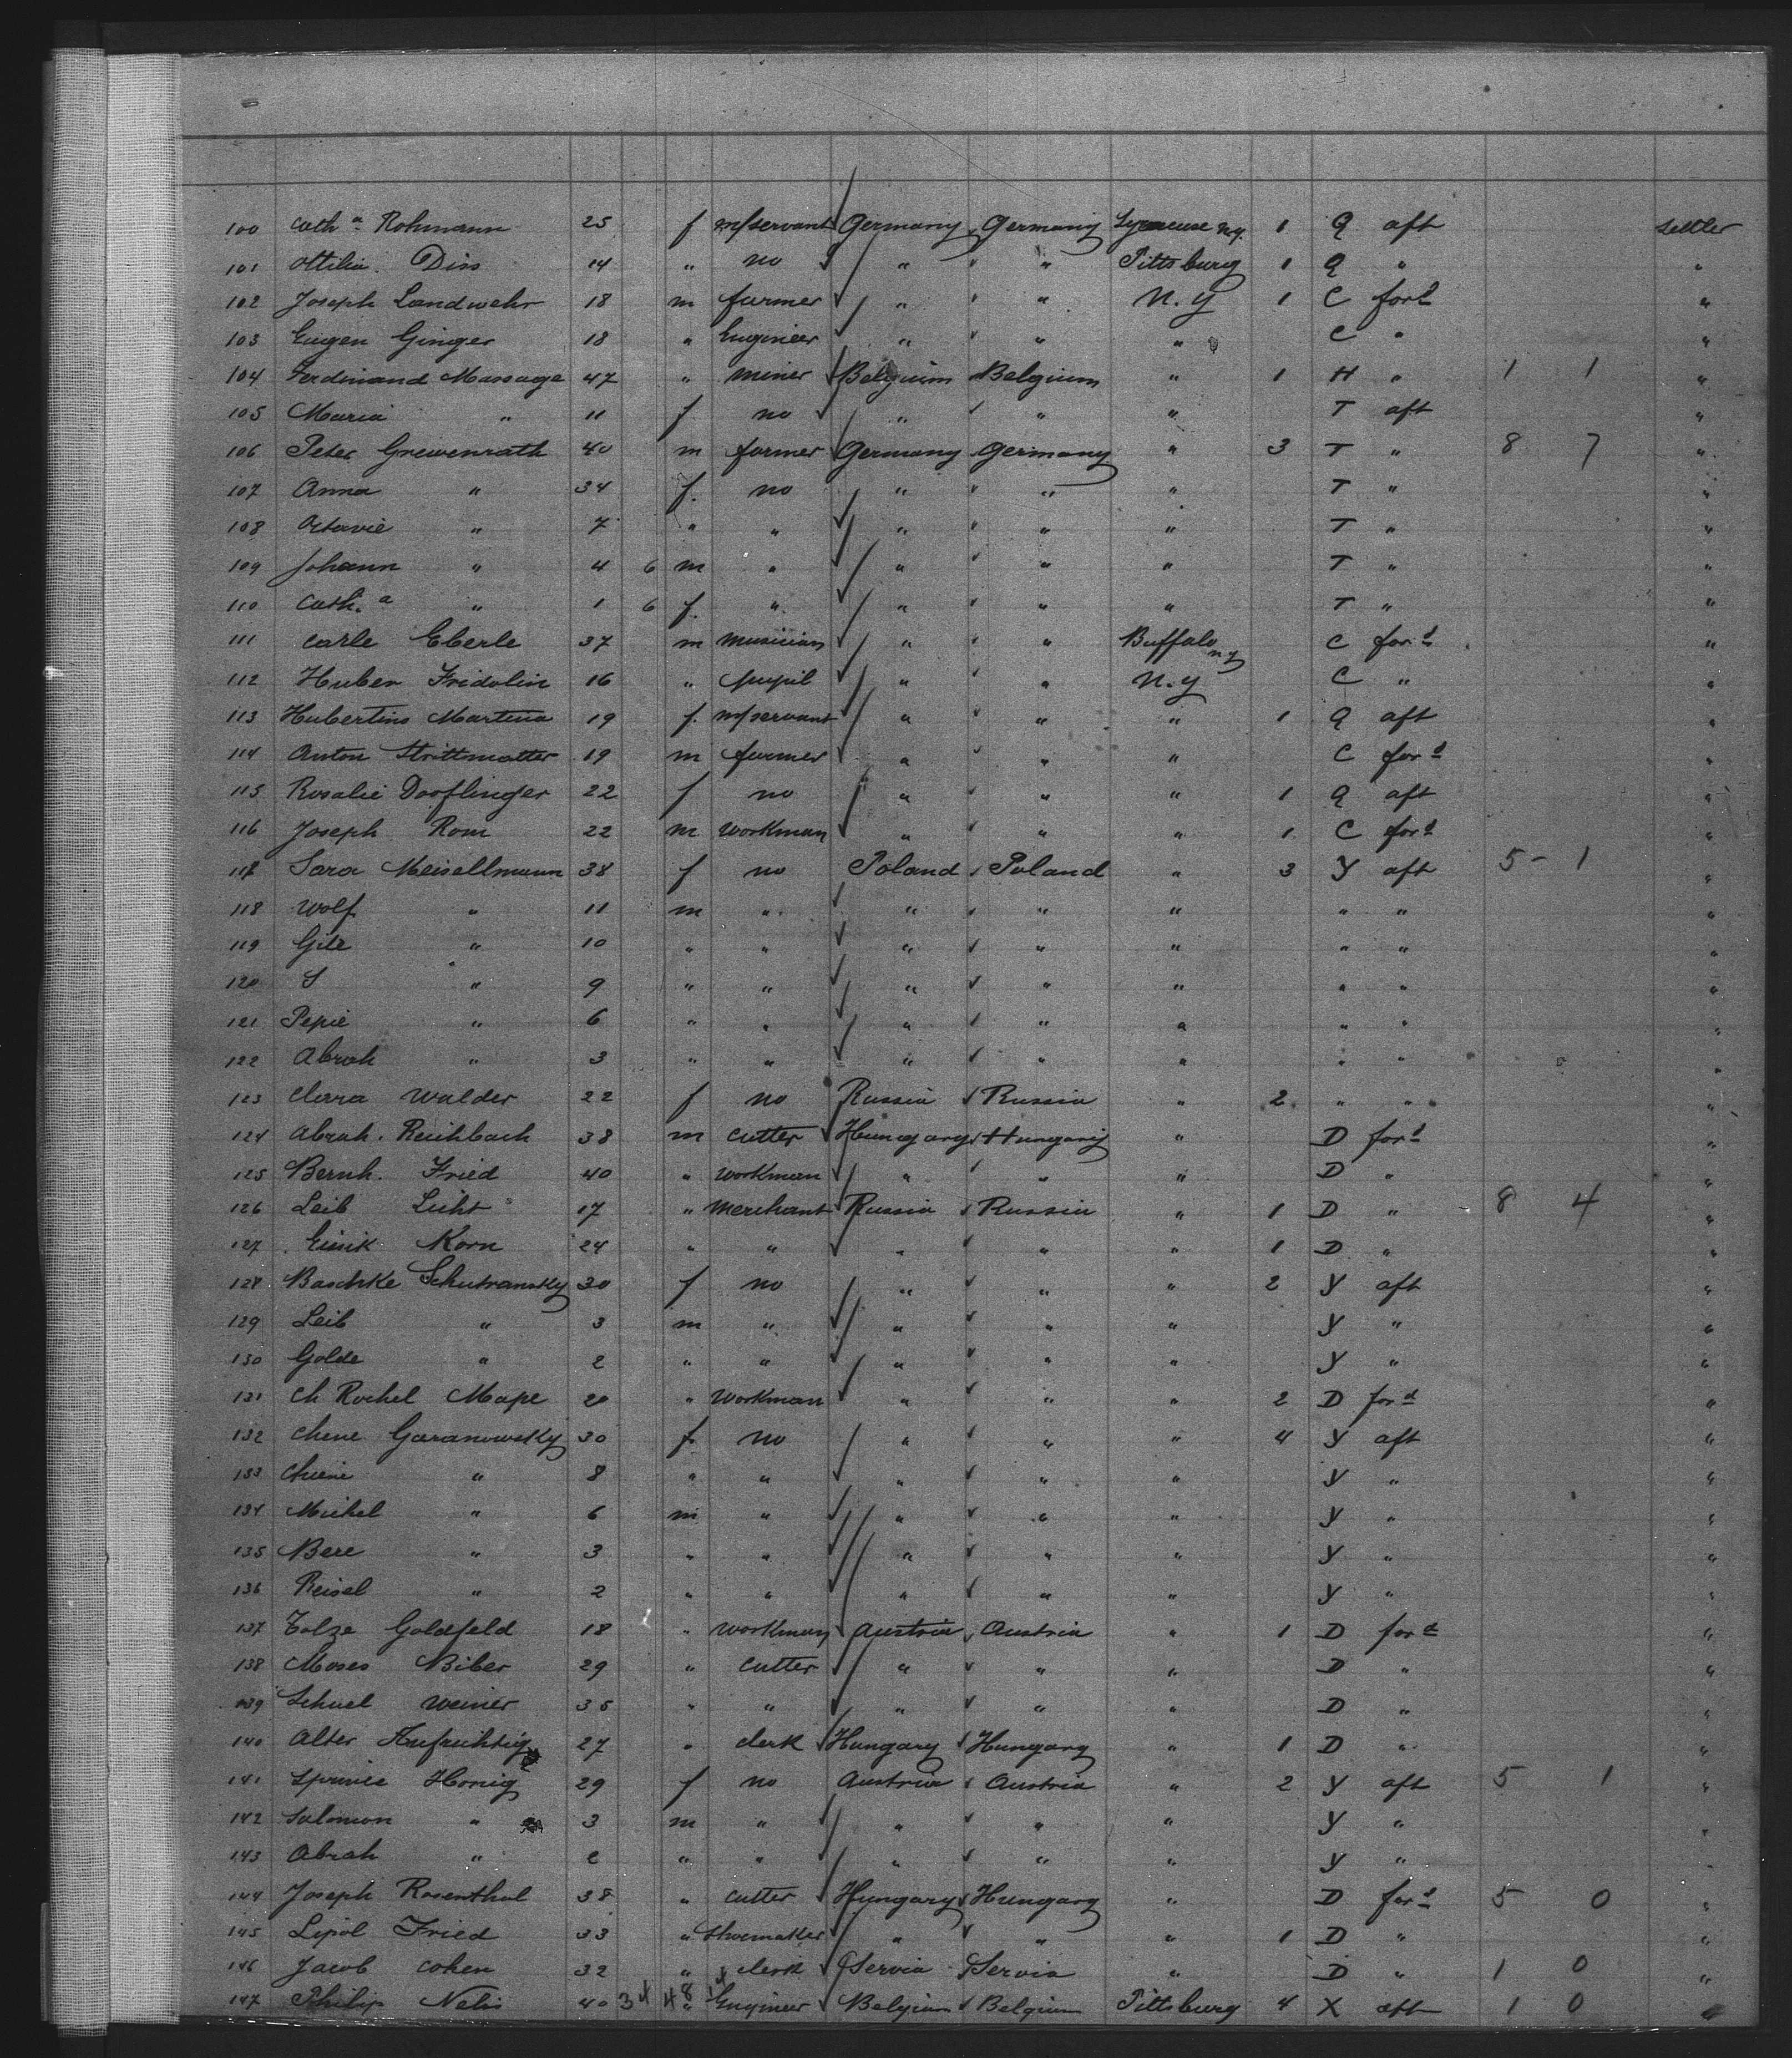 100 Cath.a Rohmann 25 f m/servant Germany Germany Syracuse N.Y. 1 Q aft settler
101 Ottilia Diss 14 " no " " Pittsburg 1 Q " "
102 Joseph Landwehr 18 m farmer " " N.Y 1 C ford "
103 Eugen Ginger 18 " Engineer " " " C " "
104 Ferdinand Massage 47 " miner Belgium Belgium " 1 H " 1 1 "
105 Maria " 11 f no " " " T aft "
106 Peter Grewenrath 40 m farmer Germany Germany " 3 T " 8 7 "
107 Anna " 34 f. no " " " T " "
108 Octavie " 7 " " " " " T " "
109 Johann " 4 6 m " " " " T " "
110 Cath.a " 1 6 f. " " " " T " "
111 Carle Eberle 37 m musician " " Buffalo N.Y C ford "
112 Huber Fridolin 16 " pupil " " N.Y C " "
113 Hubertins Martina 19 f. m/servant " " " 1 Q aft "
114 Anton Strittmatter 19 m farmer " " " C ford "
115 Rosalie Dooflinger 22 f no " " " 1 Q aft "
116 Joseph Rom 22 m workman " " " 1 C ford "
117 Sara Meisellmann 38 f no Poland Poland " 3 Y aft 5 - 1 "
118 Wolf " 11 m " " " " " " "
119 Gile " 10 " " " " " " " "
120 S " 9 " " " " " " " "
121 Pepie " 6 " " " " " " " "
122 Abrah " 3 " " " " " " " "
123 Clara Walder 22 f no Russia Russia " 2 " " "
124 Abrah. Reichbach 38 m cutter Hungary Hungary " D ford "
125 Bernh. Fried 40 " workman " " " D " "
126 Leib Licht 17 " merchant Russia Russia " 1 D " 8 4 "
127 Eisik Korn 24 " " " " " 1 D " "
128 Baschke Schutransky 30 f no " " " 2 Y aft "
129 Leib " 3 m " " " " Y " "
130 Golde " 2 " " " " " Y " "
131 Ch Rochel Mape 20 " workman " " " 2 D ford "
132 Chene Garanowsky 30 f no " " " 4 Y aft "
133 " 8 " " " " " Y " "
134 Michel " 6 m " " " " Y " "
135 Bere " 3 " " " " " Y " "
136 Reisel " 2 " " " " " Y " "
137 Tolze Goldfeld 18 " workman Austria Austria " 1 D ford "
138 Moses Biber 29 " cutter " " " D " "
139 Schuel Weiner 35 " " " " " D " "
140 Alter Aufrichtig 27 " clerk Hungary Hungary " 1 D " "
141 Honig 29 f no Austria Austria " 2 Y aft 5 1 "
142 Salomon " 3 m " " " " Y " "
143 Abrah " 2 " " " " " Y " "
144 Joseph Rosenthal 38 " cutter Hungary Hungary " D ford 5 0 "
145 Lipol Fried 33 " Shoemaker " " " 1 D " "
146 Jacob Cohen 32 " clerk Servia Servia " D " 1 0 "
147 Philip Nelis 40 34 48 " Engineer Belgium Belgium Pittsburg 4 X aft 1 0 "